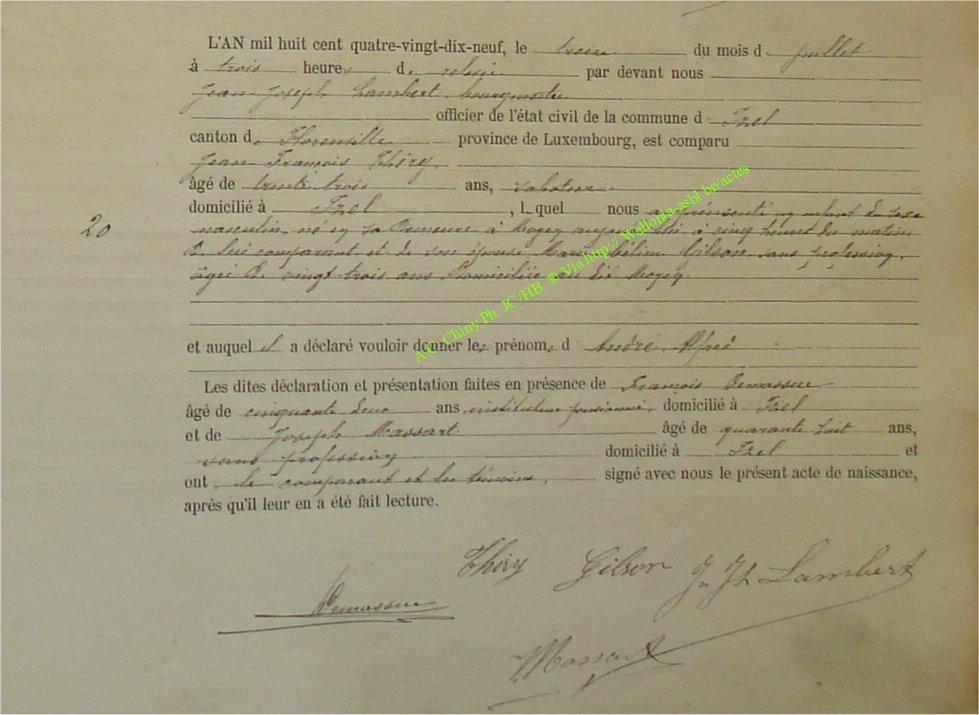 L'AN mil huit cent quatre-vingt-dix-neuf, le treize du mois d juillet
à trois heures d. relevée par devant nous
Jean Joseph Lambert, bourgmestre
officier de l'état civil de la commune d Izel
canton d. Florenville province de Luxembourg, est comparu
Jean François Thiry,
âgé de trente trois ans, sabotier.
domicilié à Izel, l. quel nous a présenté un enfant du sexe
20
masculin, né en sa demeure à Moyen aujourd'hui à cinq heures du matin
de lui comparant et de son épouse Marie Gilson sans profession,
âgée de vingt trois ans domiciliée au dit Moyen
et auquel il a déclaré vouloir donner les prénoms d André Alfred
Les dites déclaration et présentation faites en présence de François Demasseur
âgé de cinquante deux ans instituteur pensionné, domicilié à Izel
et de Joseph Massart âgé de quarante huit ans,
sans profession domicilié à Izel et
ont le comparant et les témoins, signé avec nous le présent acte de naissance,
après qu'il leur en a été fait lecture.
Thiry Gilson J. Jh Lambert
Massart
A.C. Chiny Ph. JC/HB ® Via http://Wallonia-asbl.be/actes